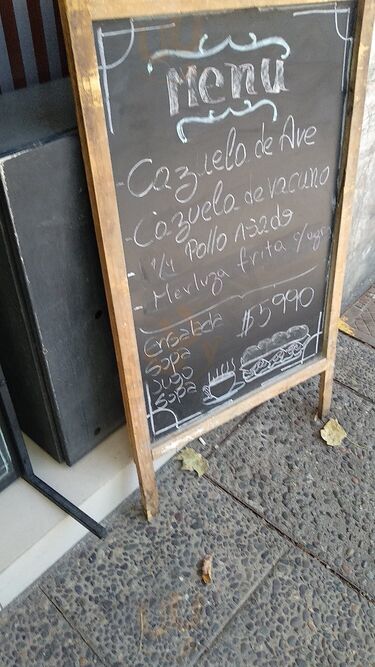 Menu
- Cazuela de Ave
- Cazuela de vacuno
- 1/4 Pollo Asado
- Merluza frita c/agr
Ensalada
Sopa
Jugo
Sopa
$5990